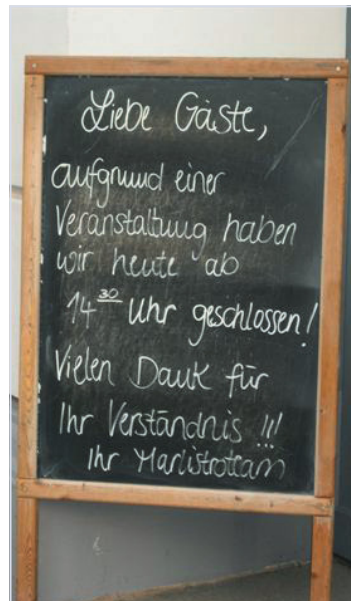 Liebe Gäste,
aufgrund einer
Veranstaltung haben
wir heute ab
14³⁰ Uhr geschlossen!
Vielen Dank für
Ihr Verständnis !!!
Ihr